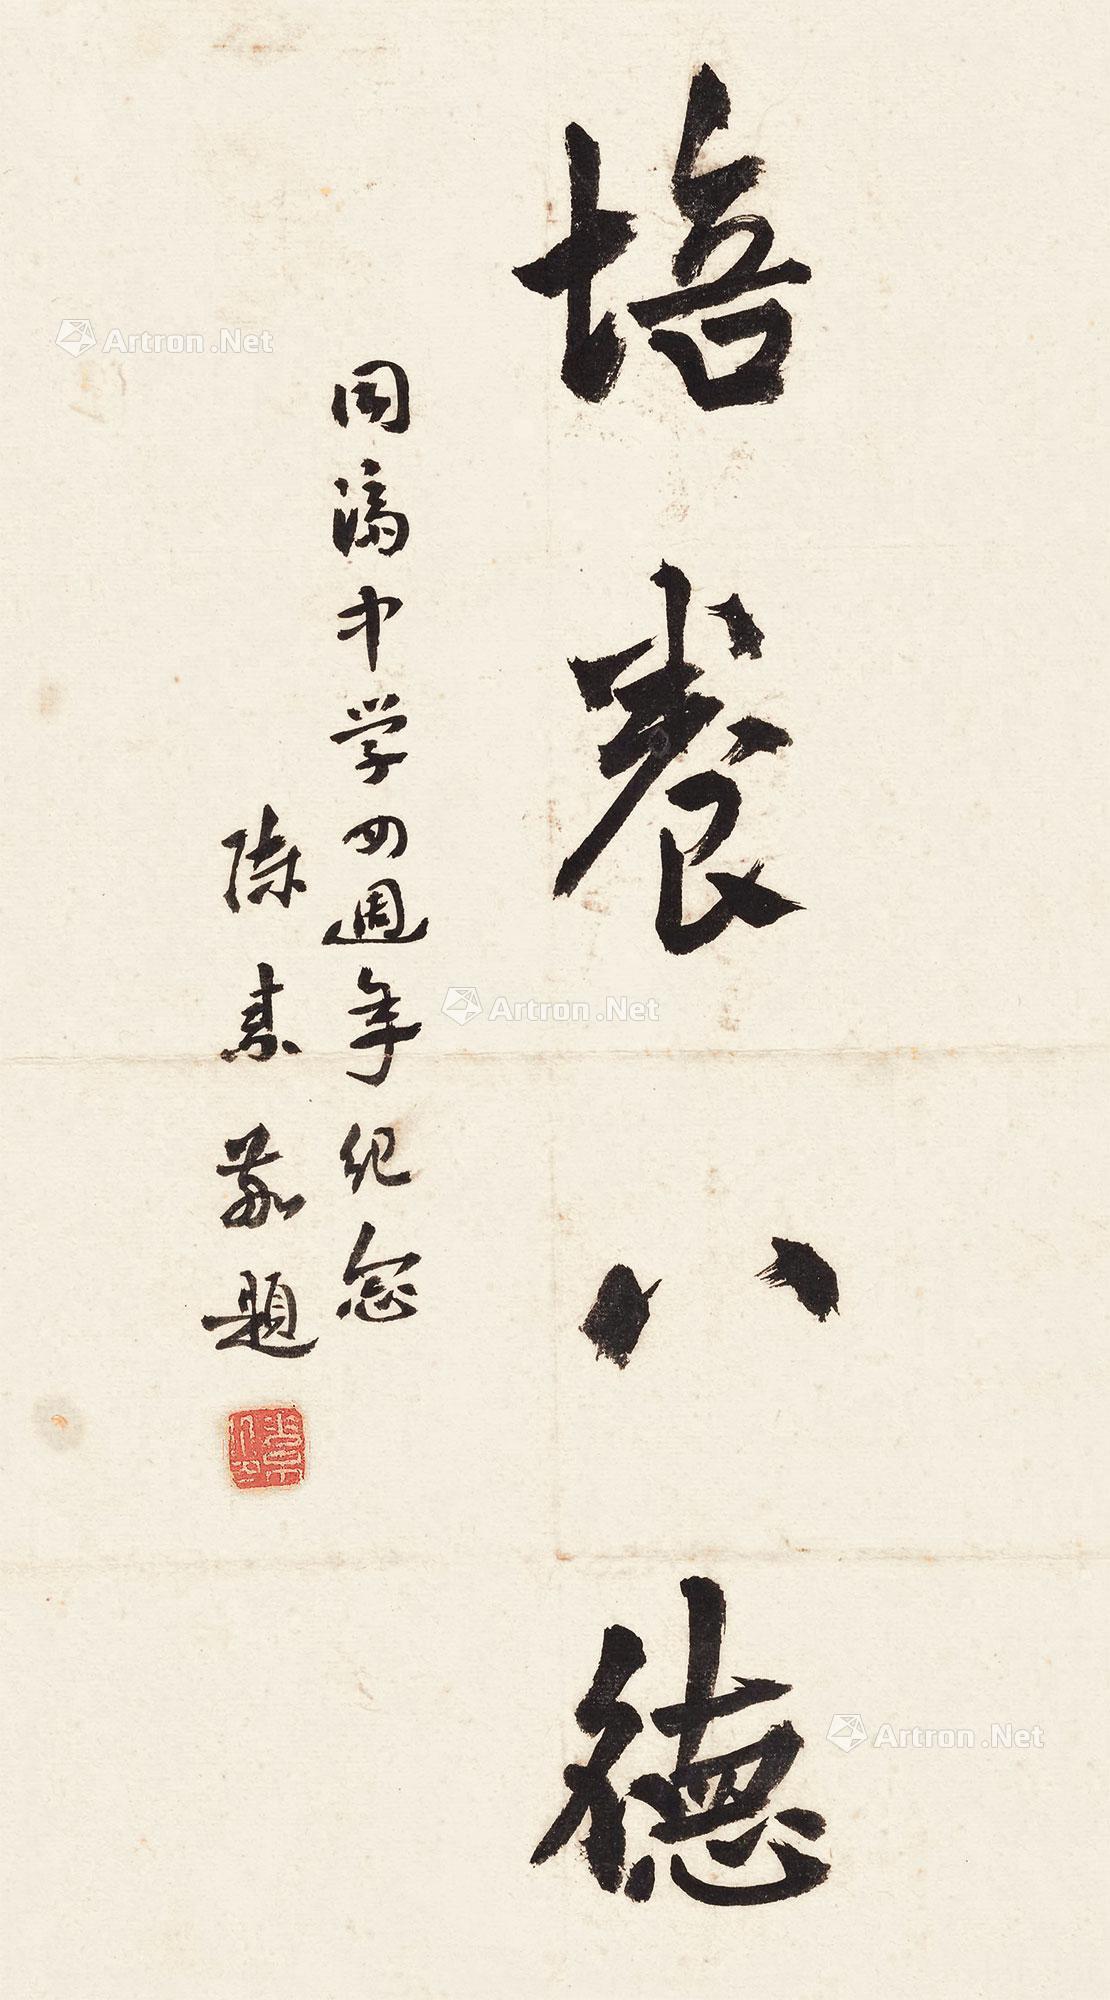 培養八德
同濟中学四週年紀念
陳素敬題
Artron.Net
Artron.Net
Artron.Net